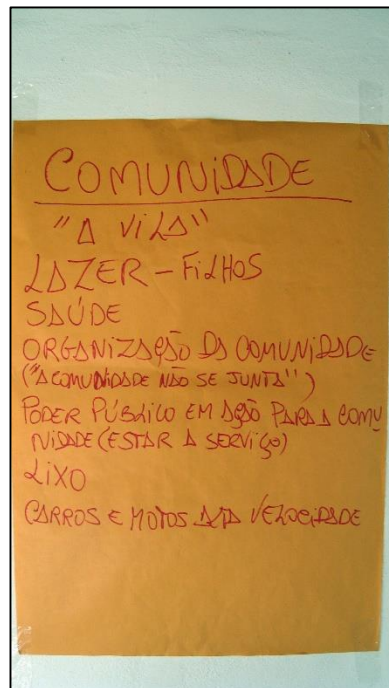 COMUNIDADE
"A VILA"
LAZER - FILHOS
SAÚDE
ORGANIZAÇÃO DA COMUNIDADE
("A COMUNIDADE NÃO SE JUNTA")
PODER PÚBLICO EM AÇÃO PARA A COMU
NIDADE (ESTAR A SERVIÇO)
LIXO
CARROS E MOTOS ALTA VELOCIDADE